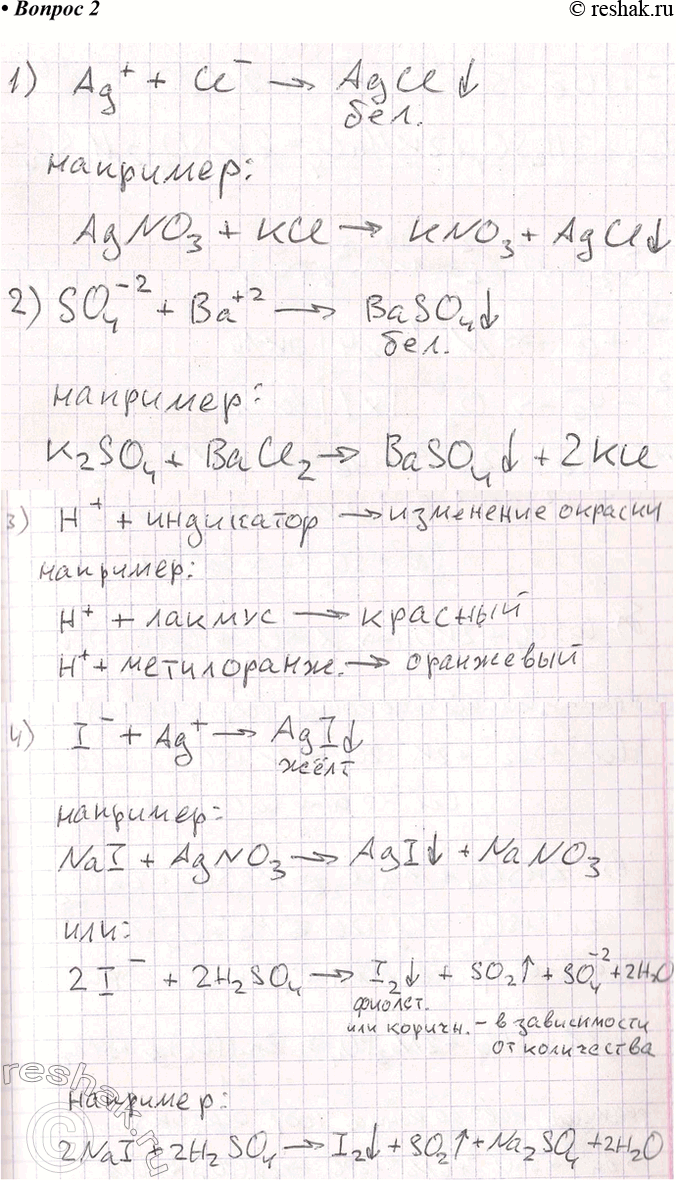 • Вопрос 2
© reshak.ru
1) Ag⁺ + Cl⁻ → AgCl↓
бел.
например:
AgNO₃ + KCl → KNO₃ + AgCl↓
2) SO₄⁻² + Ba⁺² → BaSO₄↓
бел.
например:
K₂SO₄ + BaCl₂ → BaSO₄↓ + 2KCl
3) H⁺ + индикатор → изменение окраски
например:
H⁺ + лакмус → красный
H⁺ + метилоранж. → оранжевый
4) I⁻ + Ag⁺ → AgI↓
жёлт
например:
NaI + AgNO₃ → AgI↓ + NaNO₃
или:
2I⁻ + 2H₂SO₄ → I₂↓ + SO₂↑ + SO₄⁻² + 2H₂O
фиолет.
или коричн. – в зависимости
от количества
например:
2NaI + 2H₂SO₄ → I₂↓ + SO₂↑ + Na₂SO₄ + 2H₂O
reshak.ru